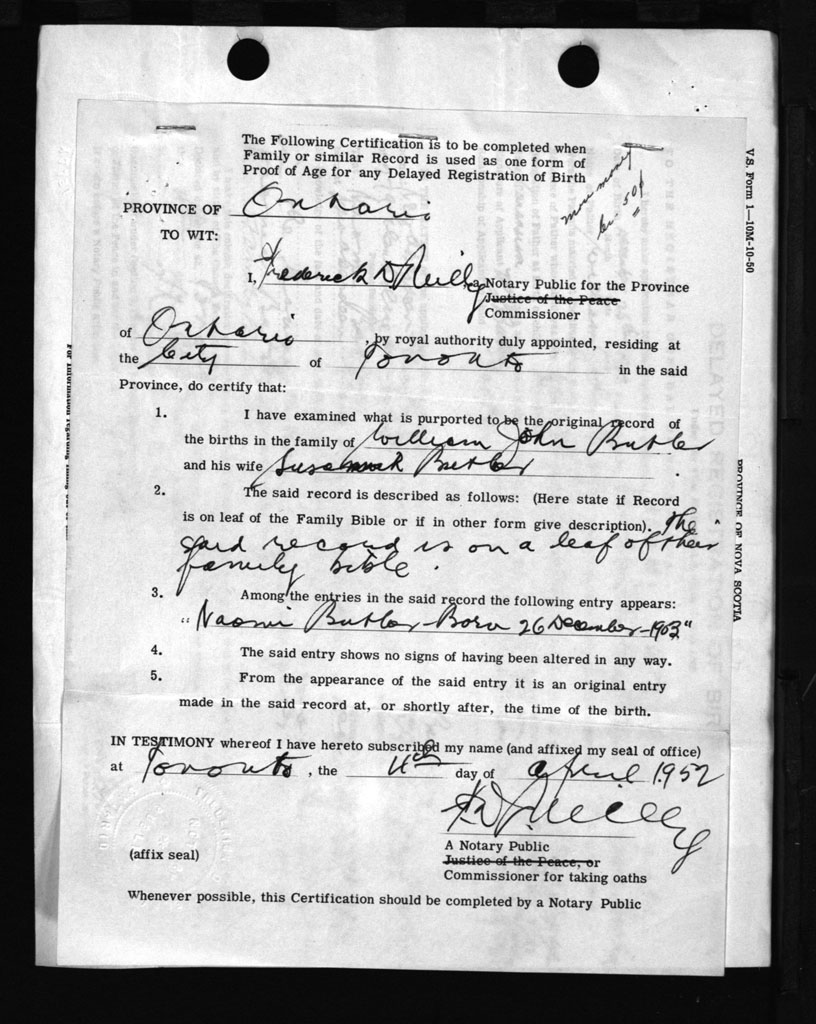 The Following Certification is to be completed when
Family or similar Record is used as one form of
Proof of Age for any Delayed Registration of Birth
more money
50¢
PROVINCE OF Ontario
TO WIT:
I, Frederick D Reilly, a Notary Public for the Province
Justice of the Peace
Commissioner
of Ontario, by royal authority duly appointed, residing at
the City of Toronto in the said
Province, do certify that:
1. I have examined what is purported to be the original record of
the births in the family of William John Butler
and his wife Susannah Butler.
2. The said record is described as follows: (Here state if Record
is on leaf of the Family Bible or if in other form give description). The
said record is on a leaf of their
family bible.
3. Among the entries in the said record the following entry appears:
"Naomi Butler - Born 26 December - 1903"
4. The said entry shows no signs of having been altered in any way.
5. From the appearance of the said entry it is an original entry
made in the said record at, or shortly after, the time of the birth.
IN TESTIMONY whereof I have hereto subscribed my name (and affixed my seal of office)
at Toronto, the 4th day of April 1952
F. D. Reilly
A Notary Public
Justice of the Peace, or
Commissioner for taking oaths
(affix seal)
Whenever possible, this Certification should be completed by a Notary Public
V.S. Form 1—10M-10-50
PROVINCE OF NOVA SCOTIA